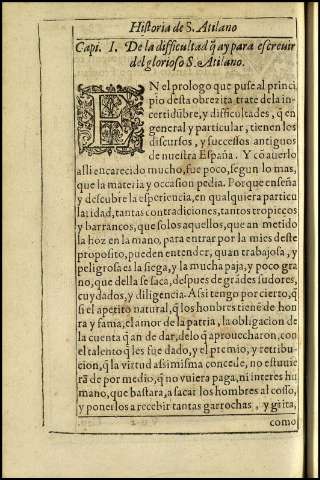 Historia de S. Atilano
Capi. I. De la difficultad q̃ ay para escreuir
del glorioso S. Atilano.
EN el prologo que puse al princi
pio desta obrezita trate de la in-
certidũbre, y difficultades, q̃ en
general y particular, tienen los
discursos, y successos antiguos
de nuestra España. Y cõ auerlo
assi encarecido mucho, fue poco, segun lo mas,
que la materia y occasion pedia. Porque enseña
y descubre la esperiencia, en qualquiera particu
laridad, tantas contradiciones, tantos tropieços
y barrancos, que solos aquellos, que an metido
la hoz en la mano, para entrar por la mies deste
proposito, pueden entender, quan trabajosa, y
peligrosa es la siega, y la mucha paja, y poco gra
no, que della se saca, despues de grãdes sudores,
cuydados, y diligencia. Assi tengo por cierto, q̃
si el apetito natural, q̃ los hombres tienẽ de hon
ra y fama, el amor de la patria, la obligacion de
la cuenta q̃ an de dar, de lo q̃ aprouecharon, con
el talento q̃ les fue dado, y el premio, y retribu-
cion, q̃ la virtud assi misma concede, no estuuie
rã de por medio, q̃ no vuiera paga, ni interes hu
mano, que bastara, a sacar los hombres al cosso,
y ponerlos a recebir tantas garrochas, y grita,
como